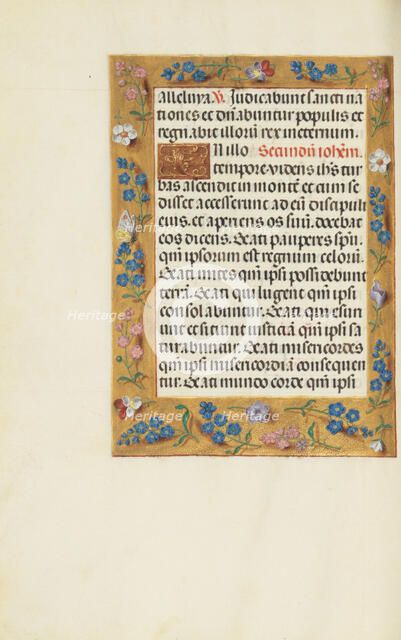 alleluya. V. Judicabunt sancti na
tiones et dn̄abuntur populis et
regnabit illorū rex ineternum.
IN illo Secundū iohēm.
tempore. videns ih̄s tur
bas ascendit in montē et cum se
disset accesserunt ad eū discipuli
eius. et aperiens os suū. docebat
eos dicens. Beati pauperes spū.
qm̄ ipsorum est regnum celorū.
Beati mites qm̄ ipsi possidebunt
terrā. Beati qui lugent qm̄ ipsi
consolabuntur. Beati qui esuri
unt et sitiunt iusticiā qm̄ ipsi sa
turabuntur. Beati misericordes
qm̄ ipsi misericordiā consequen
tur. Beati mundo corde qm̄ ipsi
Heritage
Heritage
Heritage
Heritage
Heritage
Heritage